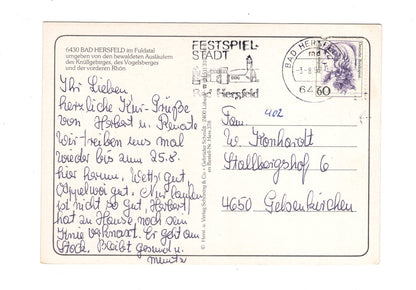 6430 BAD HERSFELD im Fuldatal
umgeben von den bewaldeten Ausläufern
des Knüllgebirges, des Vogelsberges
und der vorderen Rhön
FESTSPIEL-
STADT
Bad Hersfeld
BAD HERSFELD
60
Ihr Lieben,
herzliche Kur-Grüße
von Herbert u. Renate
Wir treiben uns mal
wieder bis zum 25.8.
hier herum. Wetter gut,
Appelwoi gut. Nur laufen
ist nicht so gut, Herbert
hat zu Hause noch sein
Knie verknaxt. Er geht am
Stock. Bleibt gesund u.
munter
402
Fam.
W. Konhardt
Stallbergshof 6
4650 Gelsenkirchen